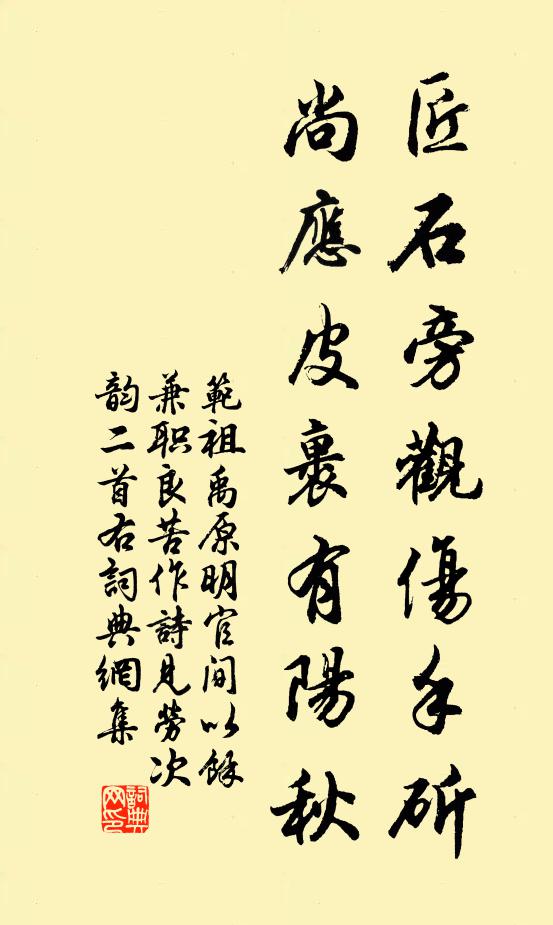 匠石旁觀傷手斫
尚應皮裏有陽秋
範祖禹原明官閒以餘
兼职良苦作詩見勞次
韵二首右詞典網集
詞典网印